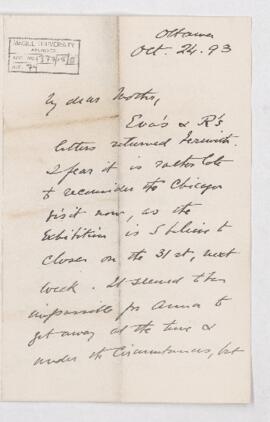 McGILL UNIVERSITY
ARCHIVES
ACC. NO.
REF.
Ottawa
Oct. 24. 93
My dear Mother,
Eva's & R's
letters returned herewith.
I fear it is rather late
to reconsider the Chicago
visit now, as the
Exhibition is to
close on the 31st, next
week. It seemed then
impossible for Anna to
get away at the time &
under the circumstances, but